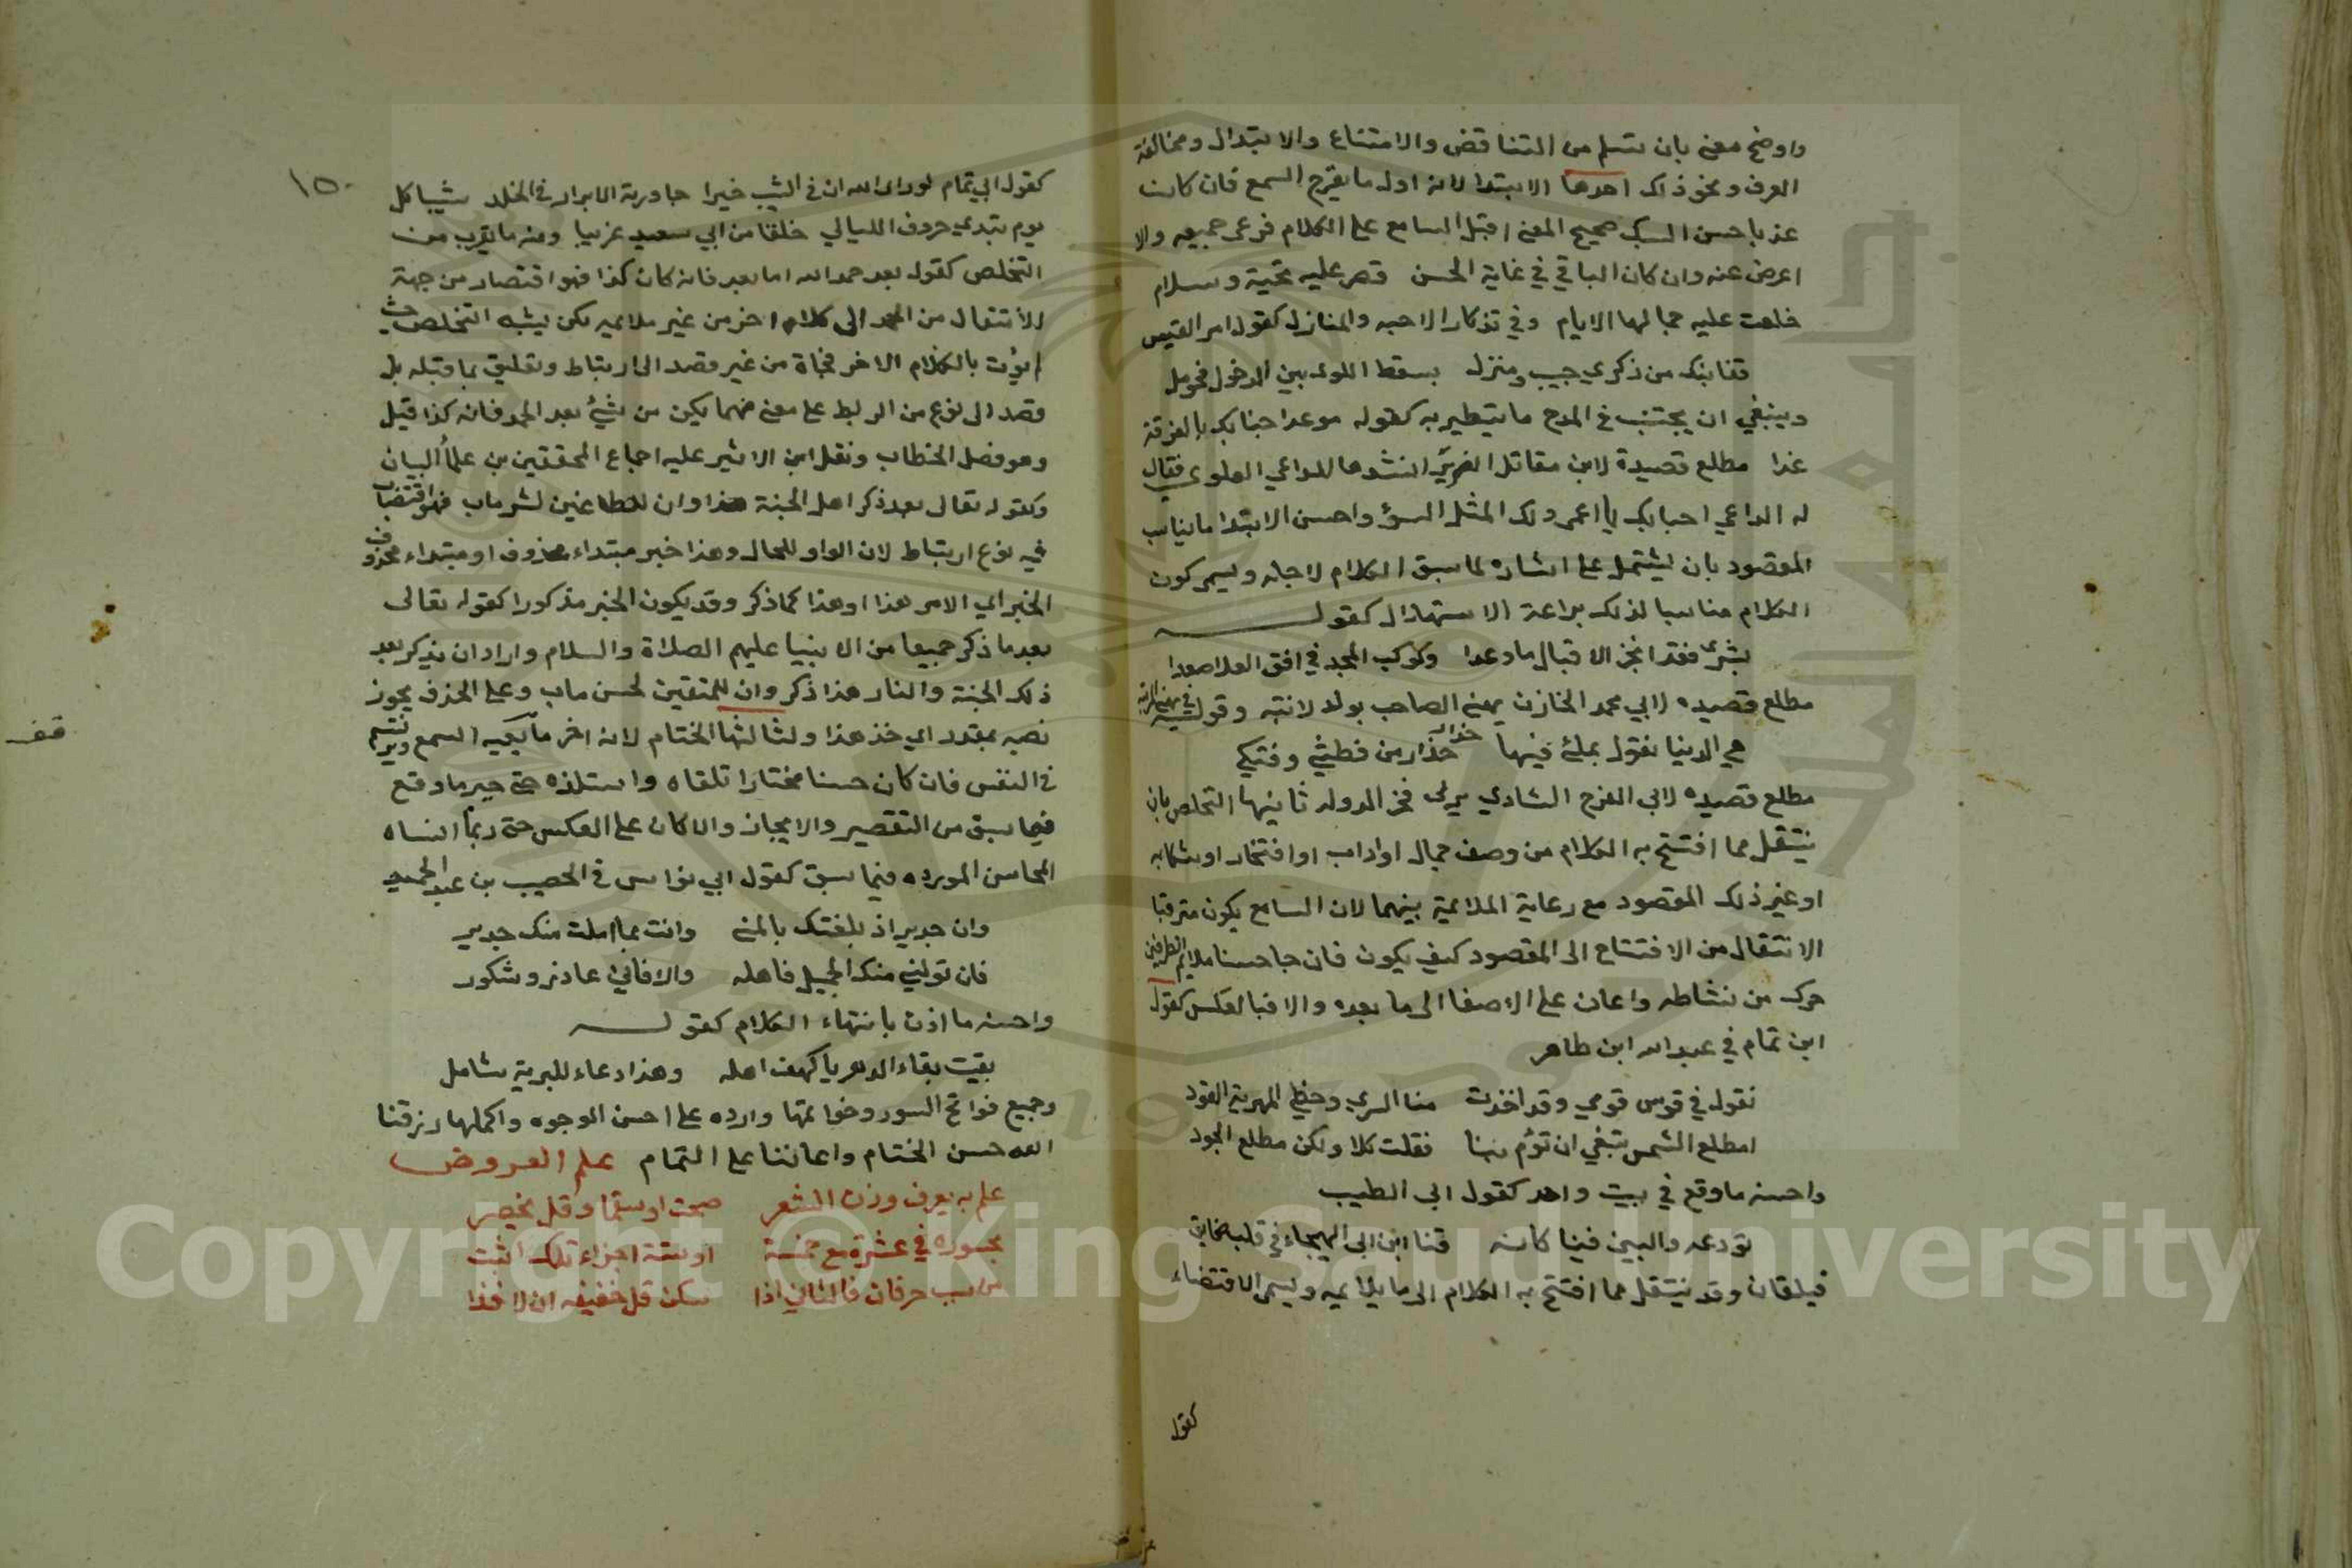 واوضح معنى بان تسلم من التناقض والامتناع والابتذال ومخالفة
العرف ونحو ذلك احدها الابتدا لانه اول ما يقرع السمع فان كانت
عذبا حسن السبك صحيح المعنى اقبل السامع على الكلام فوعى جميعه والا
اعرض عنه وان كان الباقي في غاية الحسن قصر عليه تحية وسلام
خلعت عليه جمالها الايام وفي تذكار الاحبه والمنازل كقول امر القيس
قفا نبك من ذكرى حبيب ومنزل بسقط اللوى بين الدخول فحومل
وينبغي ان يجتنب في المدح ما يتطير به كقوله موعد احبابك بالفرقة
غدا مطلع قصيدة لابن مقاتل الضرير انشدها للداعي العلوي فقال
له الداعي احبابك يا اعمى ولك المثل السؤ واحسن الابتدا ما يناسب
المقصود بان يشتمل على اشاره لما سبق الكلام لاجله ويسمى كون
الكلام مناسبا لذلك براعة الاستهلال كقولـه
بشرى فقد انجز الاقبال ما وعدا وكوكب المجد في افق العلا صعدا
مطلع قصيده لابي محمد الخازن يهنى الصاحب بولد لابنته وقوله
هي الدنيا تقول بملئ فيها حذار حذار من فطشي وفتكي
مطلع قصيده لابي الفرج الشادي يرثى فخر الدوله ثانيها التخلص بان
ينتقل مما افتتح به الكلام من وصف جمال او اداب او افتخار او شكايه
او غير ذلك المقصود مع رعاية الملايمة بينهما لان السامع يكون مترقبا
الانتقال من الافتتاح الى المقصود كيف يكون فان جا حسنا ملايم الطرفين
حرك من نشاطه واعان على الاصغا الى ما بعده والا فبالعكس كقول
ابن تمام في عبد الله ابن طاهر
نقول في قوس قومي وقد اخذت منا السرى وخطي المهرية القود
امطلع الشمس تبغي ان تؤم بنا فقلت كلا ولكن مطلع الجود
واحسنه ما وقع في بيت واحد كقول ابى الطيب
نودعه والبين فينا كانه قنا ابن ابى الهيجاء في قلب
فيلقان وقد ينتقل مما افتتح به الكلام الى ما يلايميه ويسمى الاقتضاء
كقول
١٥٠
كقول ابي تمام لو راى الله ان في الشيب خيرا جاورته الابرار في الخلد شيبا كل
يوم تبدي صروف الليالي خلقا من ابي سعيد غريبا ومنه ما يقرب من
التخلص كقوله بعد حمد الله اما بعد فانه كان كذا فهو اقتصار من جهة
الانتقال من الحمد الى كلام اخر من غير ملايمه لكن يشبه التخلص حيث
لم يؤت بالكلام الاخر فجاة من غير قصد الى ارتباط وتعليق بما قبله بل
قصد الى نوع من الربط على معنى مهما يكن من شيء بعد الحمد فانه كذا قيل
وهو فصل الخطاب ونقل ابن الاثير عليه اجماع المحققين من علماء البيان
وكقوله تعالى بعد ذكر اهل الجنة هذا وان للطاغين لشر ماب فهو اقتضاب
فيه نوع ارتباط لان الواو للحال وهذا خبر مبتداء محذوف او مبتداء محذوف
الخبر اي الامر هذا او هذا كما ذكر وقد يكون الخبر مذكورا كقوله تعالى
بعد ما ذكر جميعا من الانبيا عليهم الصلاة والسلام واراد ان يذكر بعد
ذلك الجنة والنار هذا ذكر وان للمتقين لحسن ماب وعلى الحذف يجوز
نصبه بمقدر اي خذ هذا وثالثها الختام لانه اخر ما يعيه السمع ويرتسم
في النفس فان كان حسنا مختارا تلقاه واستلذه حتى جبر ما وقع
فيما سبق من التقصير والايجاز والا كان على العكس حتى ربما انساه
المحاسن الموردة فيما سبق كقول ابي نواس في الخصيب بن عبد الحميد
وان جدير اذ بلغتك بالمنى وانت بما املت منك جدير
فان تولني منك الجميل فاهله والا فاني عاذر وشكور
واحسنه ما اذن بانتهاء الكلام كقولـه
بقيت بقاء الدهر يا كهف اهله وهذا دعاء للبرية شامل
وجميع فواتح السور وخواتمها وارده على احسن الوجوه واكملها رزقنا
الله حسن الختام واعاننا على التمام علم العروض
علم به يعرف وزن الشعر صحت او سقما وقل بخصر
بحوره في عشرة مع خمسة او ستة اجزاء تلك اثبت
من سبب حرفان فالثاني اذا سكن قل خفيفه ان لا فذا
قف
Copyright © King Saud University